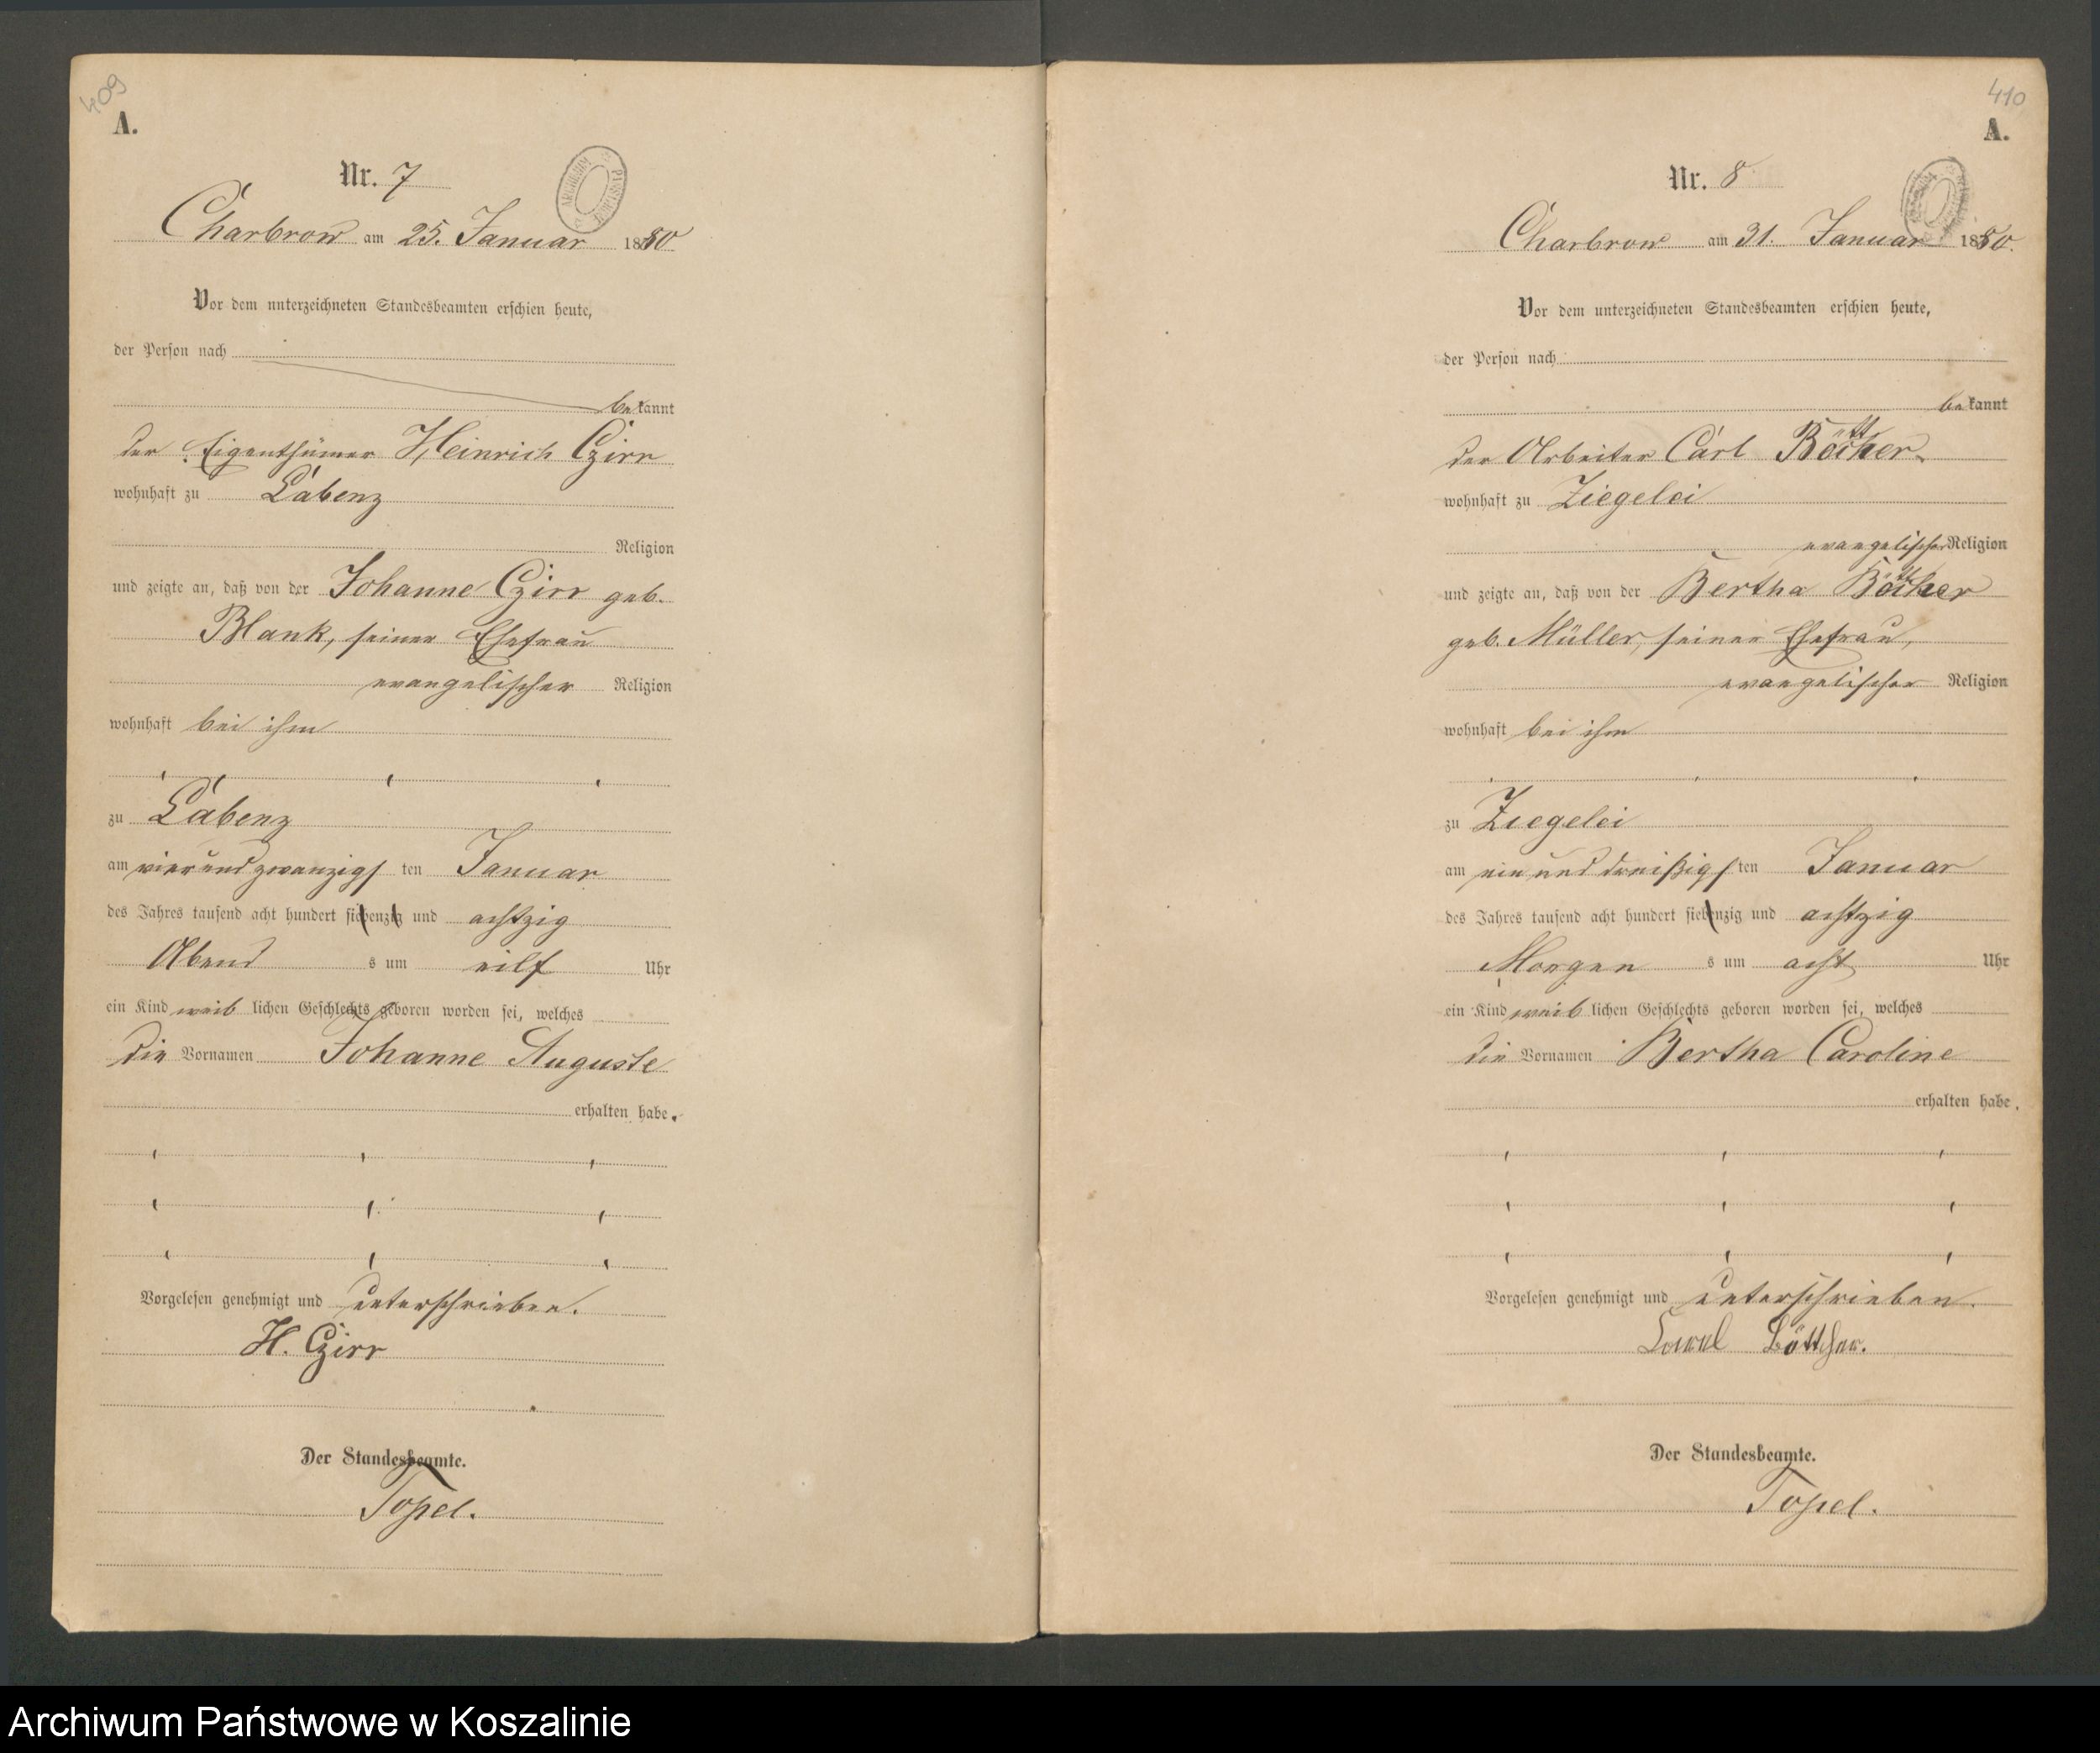 409
A.
Nr. 7
Charbrow am 25. Januar 1880
Vor dem unterzeichneten Standesbeamten erschien heute,
der Person nach
bekannt
der Eigenthümer Heinrich Czirr
wohnhaft zu Labenz
Religion
und zeigte an, daß von der Johanne Czirr geb.
Blank, seiner Ehefrau
evangelischer Religion
wohnhaft bei ihm
zu Labenz
am vierundzwanzigs ten Januar
des Jahres tausend acht hundert siebenzig und achtzig
Abend s um eilf Uhr
ein Kind weib lichen Geschlechts geboren worden sei, welches
die Vornamen Johanne Auguste
erhalten habe.
Vorgelesen genehmigt und unterschrieben.
H. Czirr
Der Standesbeamte.
Topel.
410
A.
Nr. 8
Charbrow am 31. Januar 1880.
Vor dem unterzeichneten Standesbeamten erschien heute,
der Person nach
bekannt
der Arbeiter Carl Böttcher
wohnhaft zu Ziegelei
evangelischer Religion
und zeigte an, daß von der Bertha Böttcher
geb. Müller, seiner Ehefrau,
evangelischer Religion
wohnhaft bei ihm
zu Ziegelei
am ein und dreißigs ten Januar
des Jahres tausend acht hundert siebenzig und achtzig
Morgen s um acht Uhr
ein Kind weib lichen Geschlechts geboren worden sei, welches
die Vornamen Bertha Caroline
erhalten habe.
Vorgelesen genehmigt und unterschrieben.
Böttcher.
Der Standesbeamte.
Topel.
Archiwum Państwowe w Koszalinie